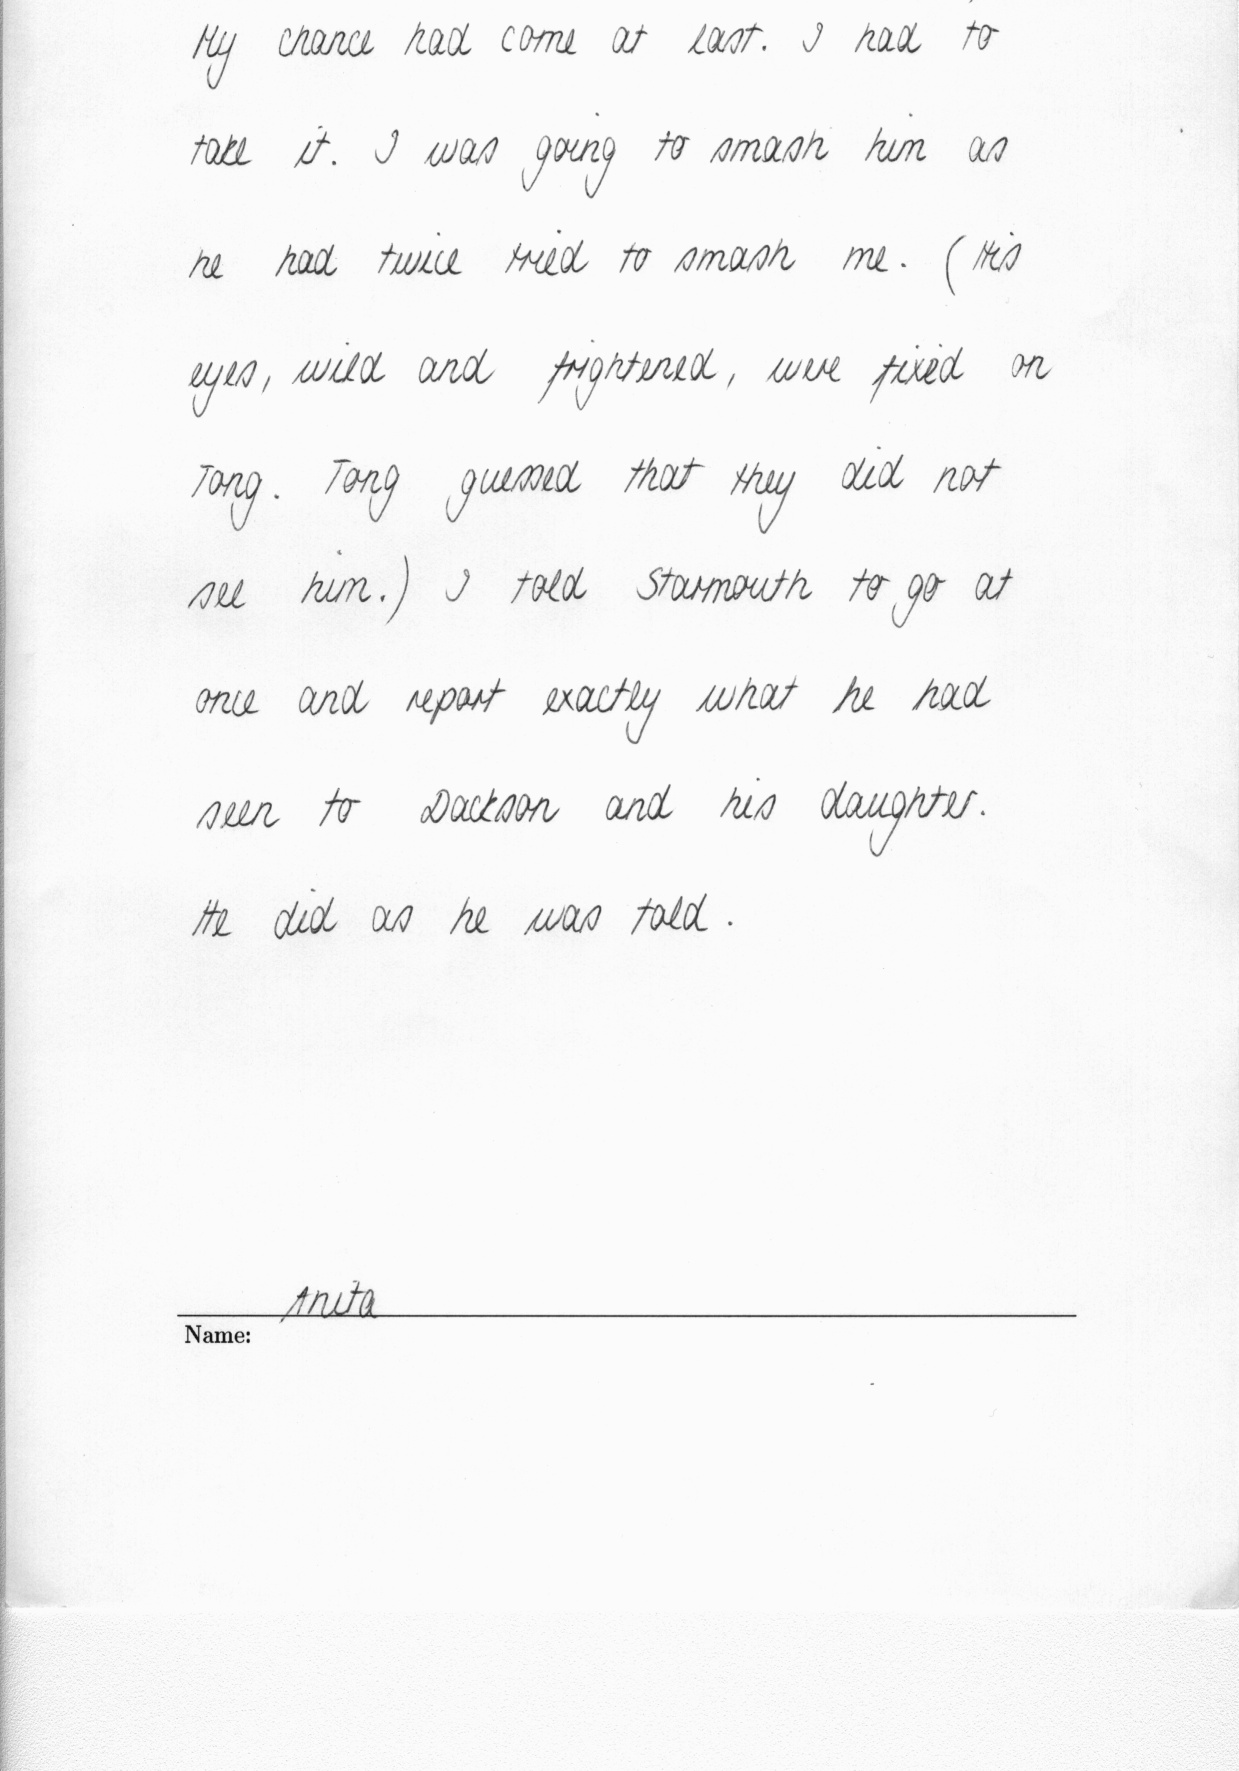 My chance had come at last. I had to
take it. I was going to smash him as
he had twice tried to smash me. (His
eyes, wild and frightened, were fixed on
Tong. Tong guessed that they did not
see him.) I told Starmouth to go at
once and report exactly what he had
seen to Dackson and his daughter.
He did as he was told.
Anita
Name: